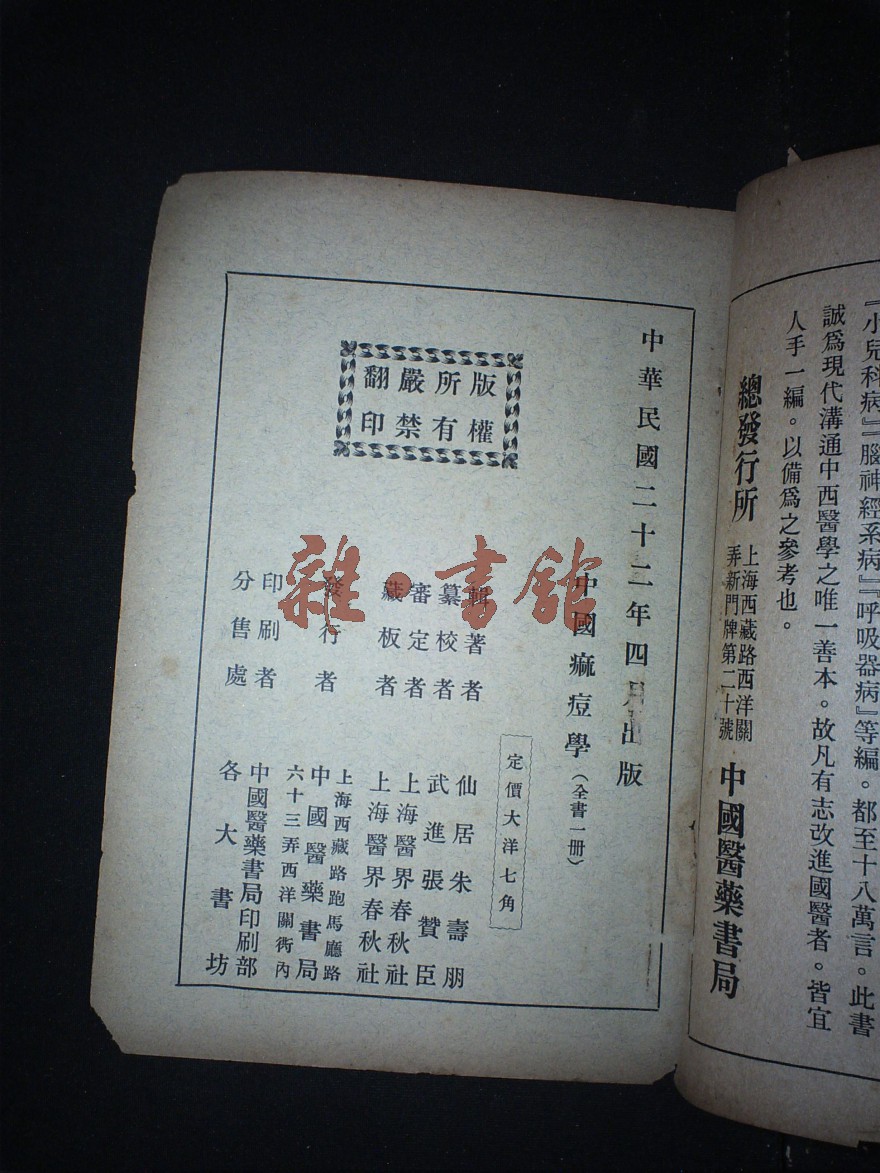 『小兒科病』『腦神經系病』『呼吸器病』等編。都至十八萬言。此書
誠爲現代溝通中西醫學之唯一善本。故凡有志改進國醫者。皆宜
人手一編。以備爲之參考也。
總發行所
上海西藏路西洋關
弄新門牌第二十號
中國醫藥書局
中華民國二十二年四月出版
中國痲痘學(全書一册)
定價大洋七角
輯著者 仙居朱壽朋
纂校者 武進張贊臣
審定者 上海醫界春秋社
藏板者 上海醫界春秋社
發行者
上海西藏路跑馬廳路
中國醫藥書局
六十三弄西洋關衖內
印刷者 中國醫藥書局印刷部
分售處 各大書坊
版權
所有
嚴禁
翻印
雜·書館